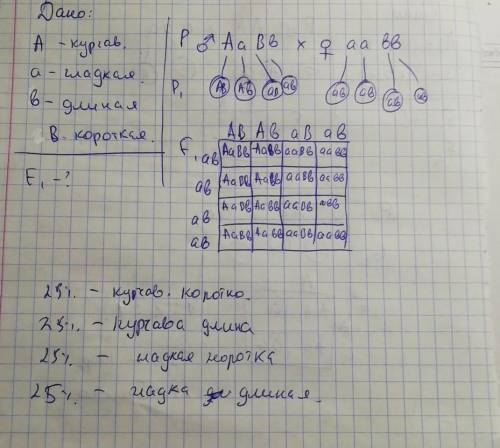 Дано:
А - курчав.
а - гладкая.
в - длиная
В. короткая.
F₁ - ?
P ♂ Аа Вв × ♀ аа вв
P₁ АВ Ав аВ ав ав ав ав ав
АВ Ав аВ ав
F₁ ав АаВв Аавв ааВв аавв
ав АаВв Аавв ааВв аавв
ав АаВв Аавв ааВв аавв
ав АаВв Аавв ааВв аавв
25% - курчав. коротко.
25% - Курчава длина
25% - гладкая коротка
25%. - гладка длиная.